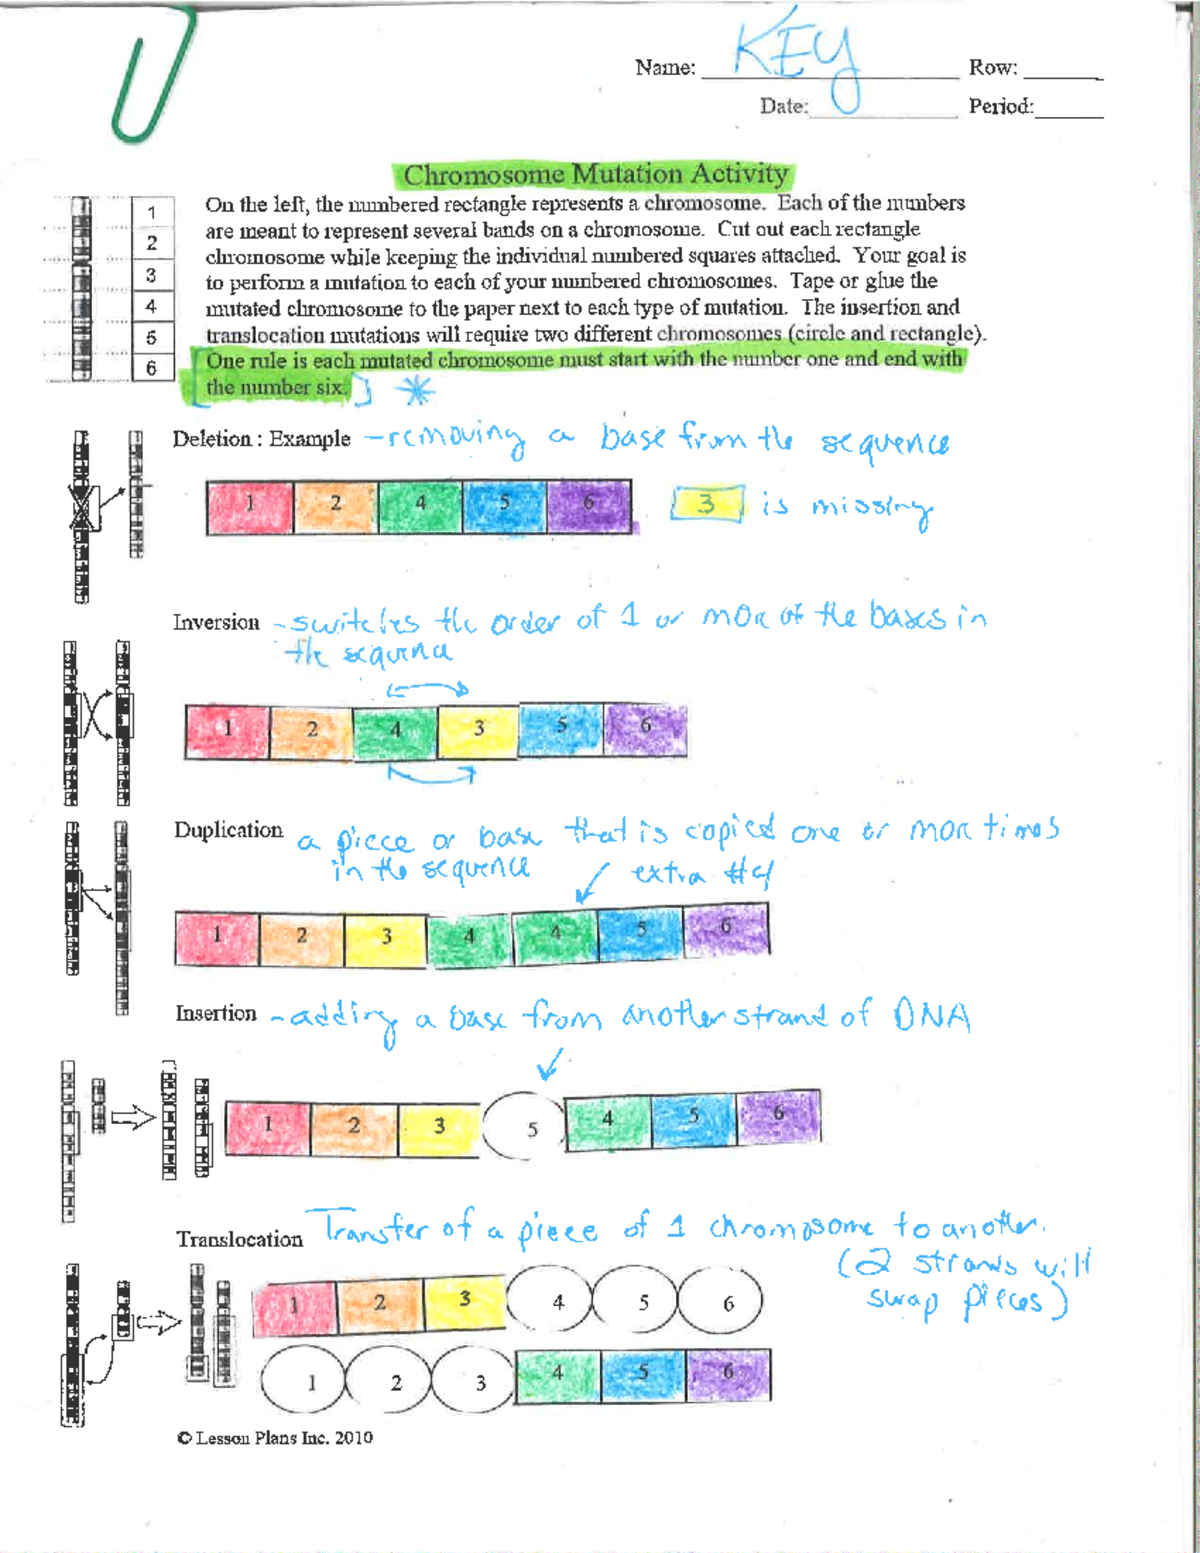 Name: KEY Row:
Date: Period:
Chromosome Mutation Activity
1
2
3
4
5
6
On the left, the numbered rectangle represents a chromosome. Each of the numbers
are meant to represent several bands on a chromosome. Cut out each rectangle
chromosome while keeping the individual numbered squares attached. Your goal is
to perform a mutation to each of your numbered chromosomes. Tape or glue the
mutated chromosome to the paper next to each type of mutation. The insertion and
translocation mutations will require two different chromosomes (circle and rectangle).
[One rule is each mutated chromosome must start with the number one and end with
the number six.] *
Deletion : Example - removing a base from the sequence
1 2 4 5 6 3 is missing
Inversion - switches the order of 1 or more of the bases in
the sequence
1 2 4 3 5 6
Duplication a piece or base that is copied one or more times
in the sequence extra #4
1 2 3 4 4 5 6
Insertion - adding a base from another strand of DNA
1 2 3 5 4 5 6
Translocation Transfer of a piece of 1 chromosome to another.
(2 strands will
swap pieces)
1 2 3 4 5 6
1 2 3 4 5 6
© Lesson Plans Inc. 2010